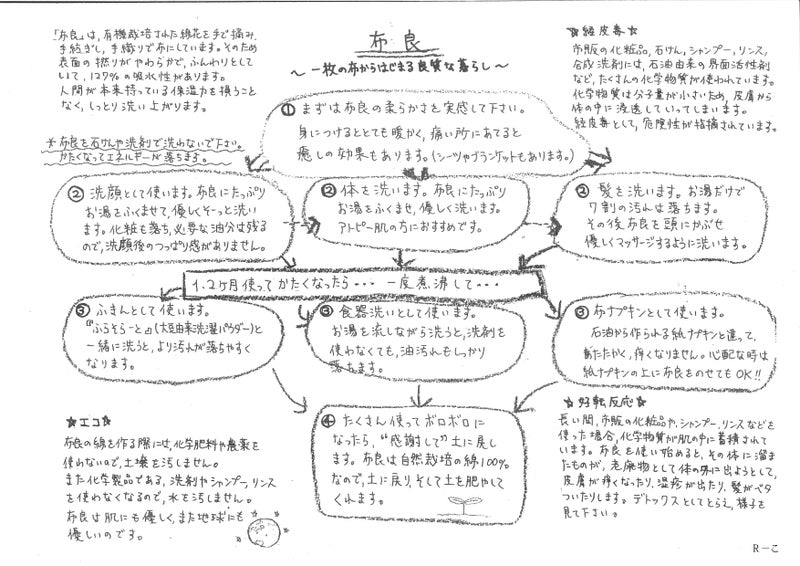 「布良」は、有機栽培された綿花を手で摘み、
手紡ぎし、手織りで布にしています。そのため
表面の撚りがやわらかで、ふんわりとして
いて、127%の吸水性があります。
人間が本来持っている保温力を損うこと
なく、しっとり洗い上がります。
*布良を石けんや洗剤で洗わないで下さい。
かたくなってエネルギーが落ちます。
布良
～一枚の布からはじまる良質な暮らし～
★経皮毒★
市販の化粧品、石けん、シャンプー、リンス、
合成洗剤には、石油由来の界面活性剤
など、たくさんの化学物質が使われています。
化学物質は分子量が小さいため、皮膚から
体の中に浸透していってしまいます。
経皮毒として、危険性が指摘されています。
①まずは布良の柔らかさを実感して下さい。
身につけるととても暖かく、痛い所にあてると
癒しの効果もあります。(シーツやブランケットもあります。)
②洗顔として使います。布良にたっぷり
お湯をふくませて、優しくそっと洗い
ます。化粧も落ち、必要な油分は残る
ので、洗顔後のつっぱり感がありません。
②体を洗います。布良にたっぷり
お湯をふくませ、優しく洗います。
アトピー肌の方におすすめです。
②髪を洗います。お湯だけで
7割の汚れは落ちます。
その後布良を頭にかぶせ
優しくマッサージするように洗います。
1.2ヶ月使ってかたくなったら・・・ 一度煮沸して・・・
③ふきんとして使います。
『ふろそらーと』(大豆由来洗濯パウダー)と
一緒に洗うと、より汚れが落ちやすく
なります。
③食器洗いとして使います。
お湯を流しながら洗うと、洗剤を
使わなくても、油汚れもしっかり
落ちます。
③布ナプキンとして使います。
石油から作られる紙ナプキンと違って、
あたたかく、痒くなりません。心配な時は
紙ナプキンの上に布良をのせてもOK!!
★エコ★
布良の綿を作る際には、化学肥料や農薬を
使わないので、土壌を汚しません。
また化学製品である、洗剤やシャンプー、リンス
を使わなくなるので、水を汚しません。
布良は肌にも優しく、また地球にも
優しいのです。
④たくさん使ってボロボロに
なったら、"感謝して"土に戻し
ます。布良は自然栽培の綿100%
なので、土に戻り、そして土を肥やして
くれます。
★好転反応★
長い間、市販の化粧品や、シャンプー、リンスなどを
使った場合、化学物質が肌の中に蓄積されて
います。布良を使い始めると、その体に溜ま
たものが、老廃物として体の外に出ようとして、
皮膚が痒くなったり、湿疹が出たり、髪がベタ
ついたりします。デトックスとしてとらえ、様子を
見て下さい。
R-こ